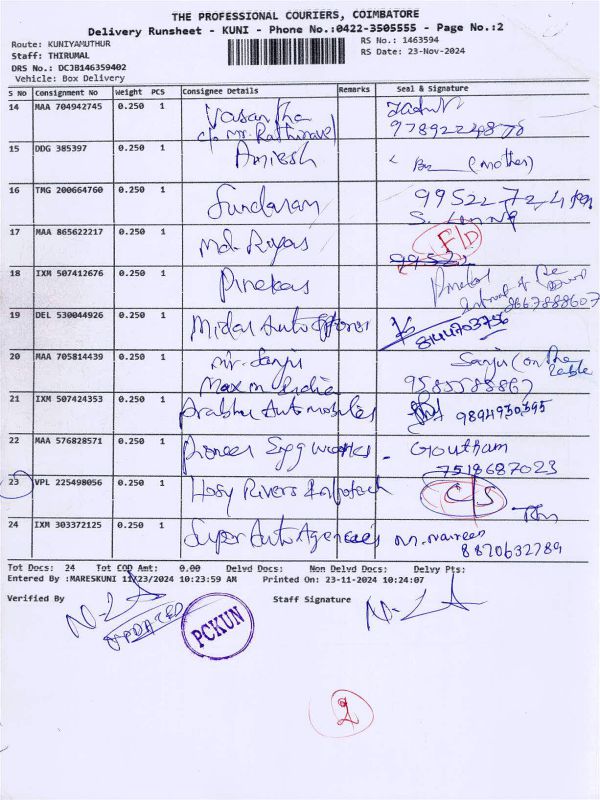 THE PROFESSIONAL COURIERS, COIMBATORE
Delivery Runsheet - KUNI - Phone No.:0422-3505555 - Page No.:2
Route: KUNIYAMUTHUR
RS No.: 1463594
Staff: THIRUMAL
RS Date: 23-Nov-2024
DRS No.: DCJB146359402
Vehicle: Box Delivery
S No Consignment No Weight PCS Consignee Details Remarks Seal & Signature
14 MAA 704942745 0.250 1 Vasantha
c/o Mr. Rathinavel
15 DDG 385397 0.250 1 Amiesh (mother)
16 TMG 200664760 0.250 1 Sundaram 99522 72
17 MAA 865622217 0.250 1 Md. F/D
99522
18 IXM 507412676 0.250 1 Pinekas
9867888607
19 DEL 530044926 0.250 1 Midas Auto
8144703756
20 MAA 705814439 0.250 1 Mr. Sanju Sanju (on the table
Max m India 9585588867
21 IXM 507424353 0.250 1 Prabhu Automobiles 9894930395
22 MAA 576828571 0.250 1 Pioneer Engg works - Goutham
7518687023
23 VPL 225498056 0.250 1 Hosy Rivers Infotech C/S
24 IXM 303372125 0.250 1 Super Auto Agencies M. Naveen
8870632789
Tot Docs: 24 Tot COD Amt: 0.00 Delvd Docs: Non Delvd Docs: Delvy Pts:
Entered By :MARESKUNI 11/23/2024 10:23:59 AM Printed On: 23-11-2024 10:24:07
Verified By Staff Signature
UPDATED
PCKUN
2